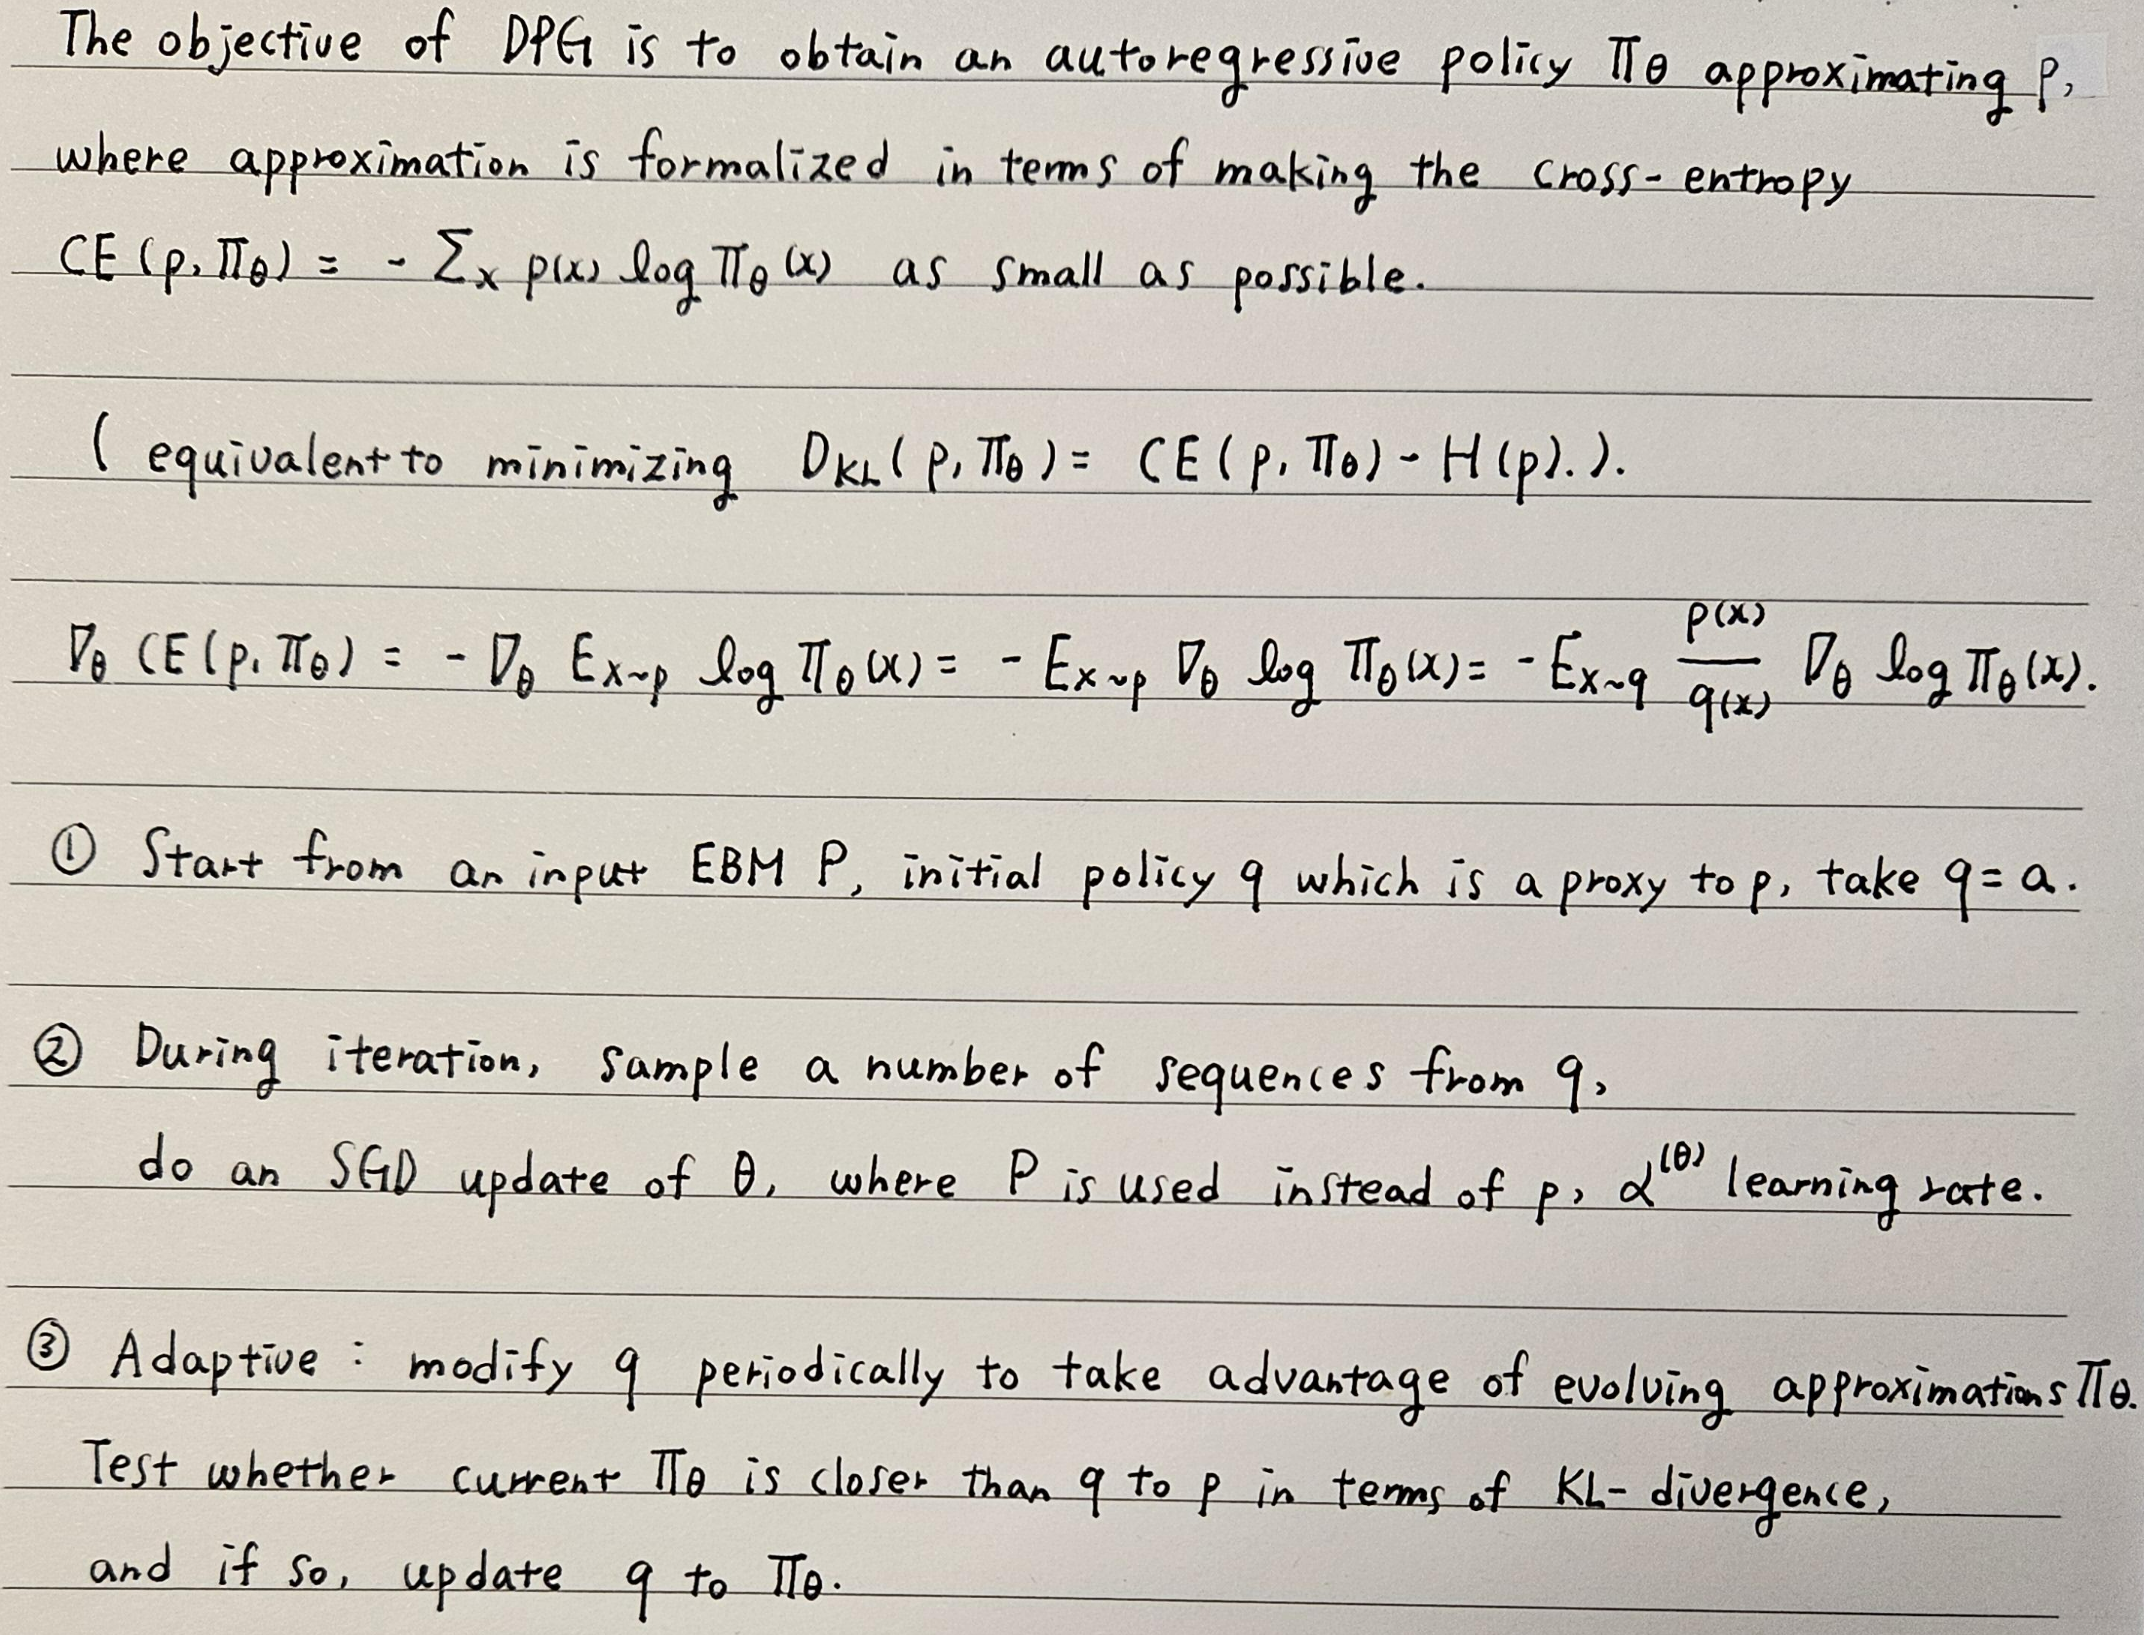 The objective of DPG is to obtain an autoregressive policy πθ approximating p,
where approximation is formalized in terms of making the cross-entropy
CE(p, πθ) = - Σx p(x) log πθ(x) as small as possible.
(equivalent to minimizing DKL(p, πθ) = CE(p, πθ) - H(p).).
∇θ CE(p, πθ) = - ∇θ Ex~p log πθ(x) = - Ex~p ∇θ log πθ(x) = - Ex~q p(x)/q(x) ∇θ log πθ(x).
① Start from an input EBM P, initial policy q which is a proxy to p, take q = a.
② During iteration, sample a number of sequences from q,
do an SGD update of θ, where P is used instead of p, α^(θ) learning rate.
③ Adaptive : modify q periodically to take advantage of evolving approximations πθ.
Test whether current πθ is closer than q to p in terms of KL-divergence,
and if so, update q to πθ.